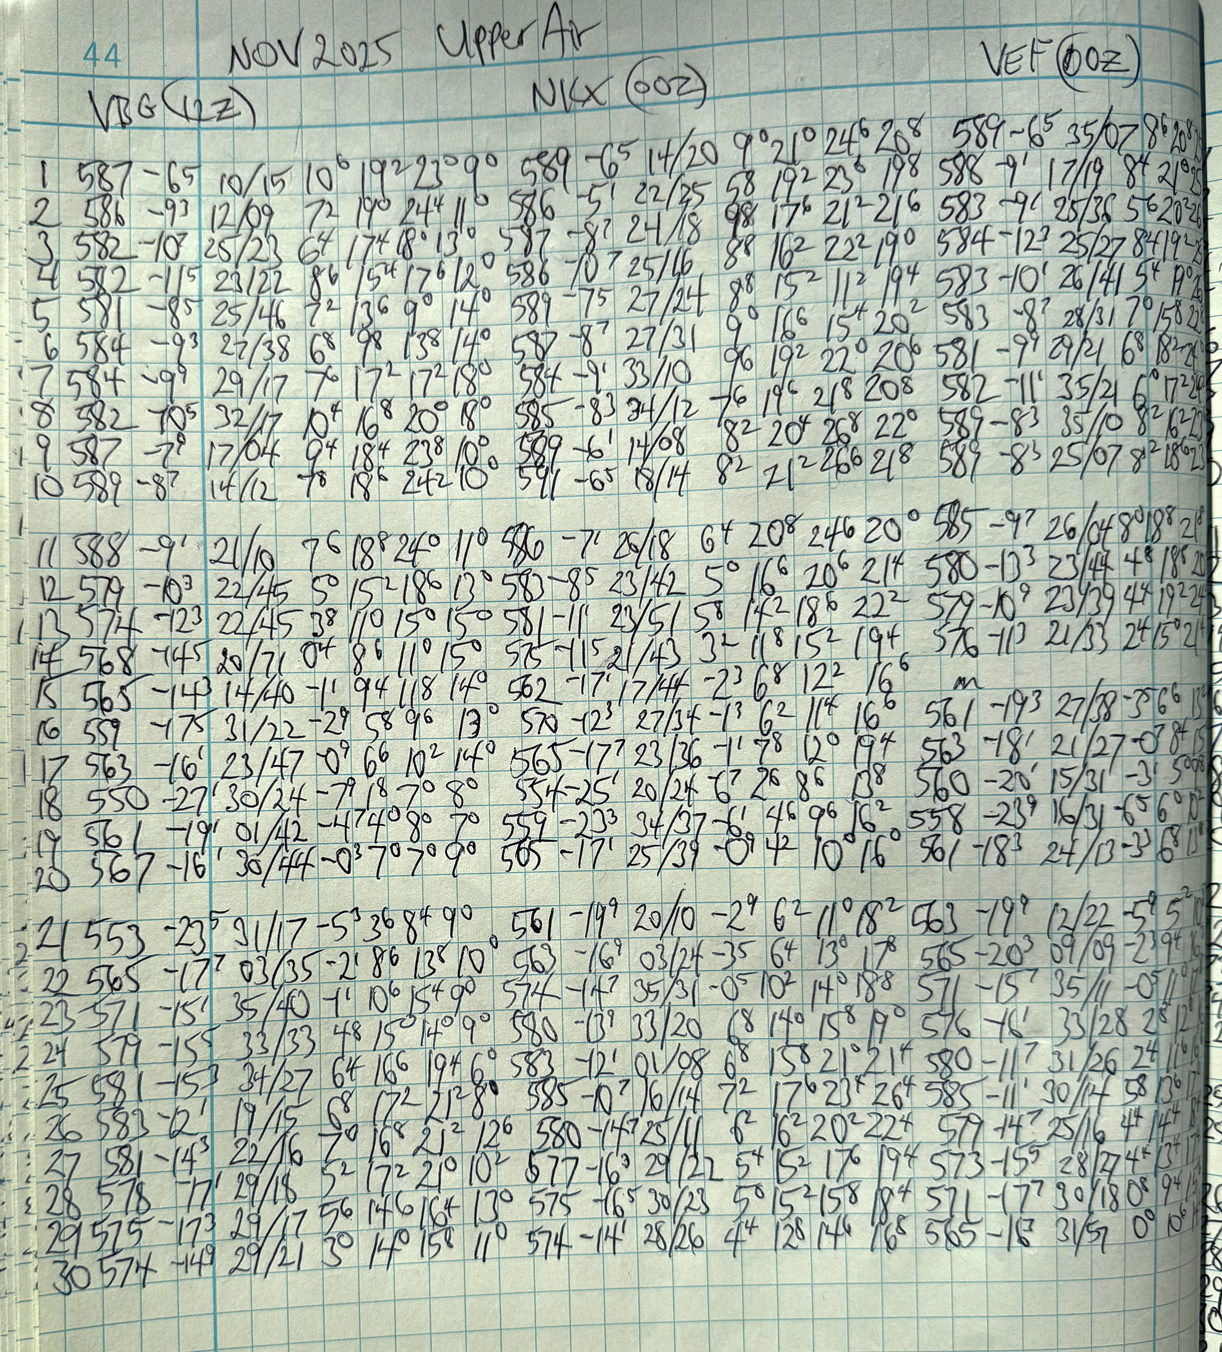 44 NOV 2025 Upper Air
VBG (12Z) NKX (00Z) VEF (00Z)
1 587 -65 10/15 10⁶ 19² 23⁰ 9⁰ 589 -6⁵ 14/20 9⁰ 21⁰ 24⁶ 20⁸ 589 -6⁵ 35/07 8⁶ 20⁸
2 586 -9³ 12/09 7² 19⁰ 24⁴ 11⁰ 586 -5¹ 22/35 5⁸ 19² 23⁶ 19⁸ 588 -9¹ 17/19 8⁴ 21⁰
3 582 -10⁷ 25/23 6⁴ 17⁴ 18⁰ 13⁰ 587 -8⁷ 24/18 9⁸ 17⁶ 21² 21⁶ 583 -9¹ 25/36 5⁶ 20²
4 582 -11⁵ 23/22 8⁶ 15⁴ 17⁶ 12⁰ 586 -10⁷ 25/16 8⁸ 16² 22² 19⁰ 584 -12³ 25/27 8⁴ 19²
5 581 -8⁵ 25/46 7² 13⁶ 9⁰ 14⁰ 589 -7⁵ 27/24 8⁸ 15² 11² 19⁴ 583 -10¹ 26/41 5⁴ 19⁰
6 584 -9³ 27/38 6⁸ 9⁸ 13⁸ 14⁰ 587 -8⁷ 27/31 9⁰ 16⁶ 15⁴ 20² 583 -8⁷ 28/31 7⁰ 15⁸
7 584 -9⁹ 29/17 7⁶ 17² 17² 18⁰ 584 -9¹ 33/10 9⁶ 19² 22⁰ 20⁶ 581 -9⁹ 29/21 6⁸ 18²
8 582 -10⁵ 32/17 10⁴ 16⁸ 20⁰ 18⁰ 585 -8³ 34/12 7⁶ 19⁶ 21⁸ 20⁸ 582 -11¹ 35/21 6⁰ 17²
9 587 -7⁹ 17/04 9⁴ 18⁴ 23⁸ 10⁰ 589 -6¹ 14/08 8² 20⁴ 26⁸ 22⁰ 589 -8³ 35/10 8² 16²
10 589 -8⁷ 14/12 7⁸ 18⁶ 24² 10⁰ 591 -6⁵ 18/14 8² 21² 26⁶ 21⁸ 589 -8³ 25/07 8² 18⁶
11 588 -9¹ 21/10 7⁶ 18⁸ 24⁰ 11⁰ 586 -7¹ 26/18 6⁴ 20⁸ 24⁶ 20⁰ 585 -9⁷ 26/04 8⁰ 18⁸
12 579 -10³ 22/45 5⁰ 15² 18⁶ 13⁰ 583 -8⁵ 23/42 5⁰ 16⁶ 20⁶ 21⁴ 580 -13³ 23/44 4⁸ 18⁸
13 574 -12³ 22/45 3⁸ 11⁰ 15⁰ 15⁰ 581 -11¹ 23/51 5⁸ 14² 18⁶ 22² 579 -10⁹ 23/39 4⁴ 19²
14 568 -14⁵ 20/71 0⁴ 8⁶ 11⁰ 15⁰ 575 -11⁵ 21/43 3² 11⁸ 15² 19⁴ 576 -11³ 21/33 2⁴ 15⁰
15 565 -14³ 14/40 -1¹ 9⁴ 11⁸ 14⁰ 562 -17¹ 17/44 -2³ 6⁸ 12² 16⁶ m
16 559 -17⁵ 31/22 -2⁹ 5⁸ 9⁶ 13⁰ 570 -12³ 27/34 -1³ 6² 11⁴ 16⁶ 561 -19³ 27/38 -3⁵ 6⁶
17 563 -16¹ 23/47 -0⁹ 6⁶ 10² 14⁰ 565 -17⁷ 23/36 -1¹ 7⁸ 12⁰ 19⁴ 563 -18¹ 21/27 -0⁷ 8⁴
18 550 -27¹ 30/24 -7⁹ 1⁸ 7⁰ 8⁰ 554 -25¹ 20/24 -6⁷ 2⁶ 8⁶ 13⁸ 560 -20¹ 15/31 -3¹ 5⁰
19 561 -19¹ 01/42 -4⁷ 4⁰ 8⁰ 7⁰ 559 -23³ 34/37 -6¹ 4⁶ 9⁶ 16² 558 -23⁹ 16/31 -6⁵ 6⁰
20 567 -16¹ 36/44 -0³ 7⁰ 7⁰ 9⁰ 565 -17¹ 25/39 -0⁹ 4² 10⁰ 16⁰ 561 -18³ 24/13 -3³ 6⁸
21 553 -23⁵ 31/17 -5³ 3⁶ 8⁴ 9⁰ 561 -19⁹ 20/10 -2⁹ 6² 11⁰ 18² 563 -19⁹ 12/22 -5⁹ 5²
22 565 -17⁷ 03/35 -2¹ 8⁶ 13⁸ 10⁰ 563 -16⁹ 03/24 -3⁵ 6⁴ 13⁰ 17⁸ 565 -20³ 09/09 -2³ 9⁴
23 571 -15¹ 35/40 -1¹ 10⁶ 15⁴ 9⁰ 574 -14⁷ 35/31 -0⁵ 10² 14⁰ 18⁸ 571 -15⁷ 35/11 -0⁵ 11⁰
24 579 -15⁵ 33/33 4⁸ 15⁰ 14⁰ 9⁰ 580 -13⁹ 33/20 6⁸ 14⁰ 15⁸ 19⁰ 576 -16¹ 33/28 2⁸ 12⁸
25 581 -15³ 34/27 6⁴ 16⁶ 19⁴ 6⁰ 583 -12¹ 01/08 6⁸ 15⁸ 21⁰ 21⁴ 580 -11⁷ 31/26 2⁴ 11⁶
26 583 -12¹ 19/15 6⁸ 17² 21² 8⁰ 585 -10⁷ 16/14 7² 17⁶ 23⁴ 26⁴ 585 -11¹ 30/14 5⁸ 13⁶
27 581 -14³ 22/16 7⁰ 16⁸ 21² 12⁶ 580 -14⁷ 25/11 6² 16² 20² 22⁴ 579 -14⁷ 25/16 4⁴ 14⁴
28 578 -17¹ 29/18 5² 17² 21⁰ 10² 577 -16³ 29/22 5⁴ 15² 17⁶ 19⁴ 573 -15⁵ 28/27 4⁴ 13⁴
29 575 -17³ 29/17 5⁶ 14⁶ 16⁴ 13⁰ 575 -16⁵ 30/23 5⁰ 15² 15⁸ 18⁴ 571 -17⁷ 30/18 0⁸ 9⁴
30 574 -14⁹ 29/21 3⁰ 14⁰ 15⁸ 11⁰ 574 -14¹ 28/26 4⁴ 12⁸ 14⁶ 16⁸ 565 -16³ 31/57 0⁰ 10⁶